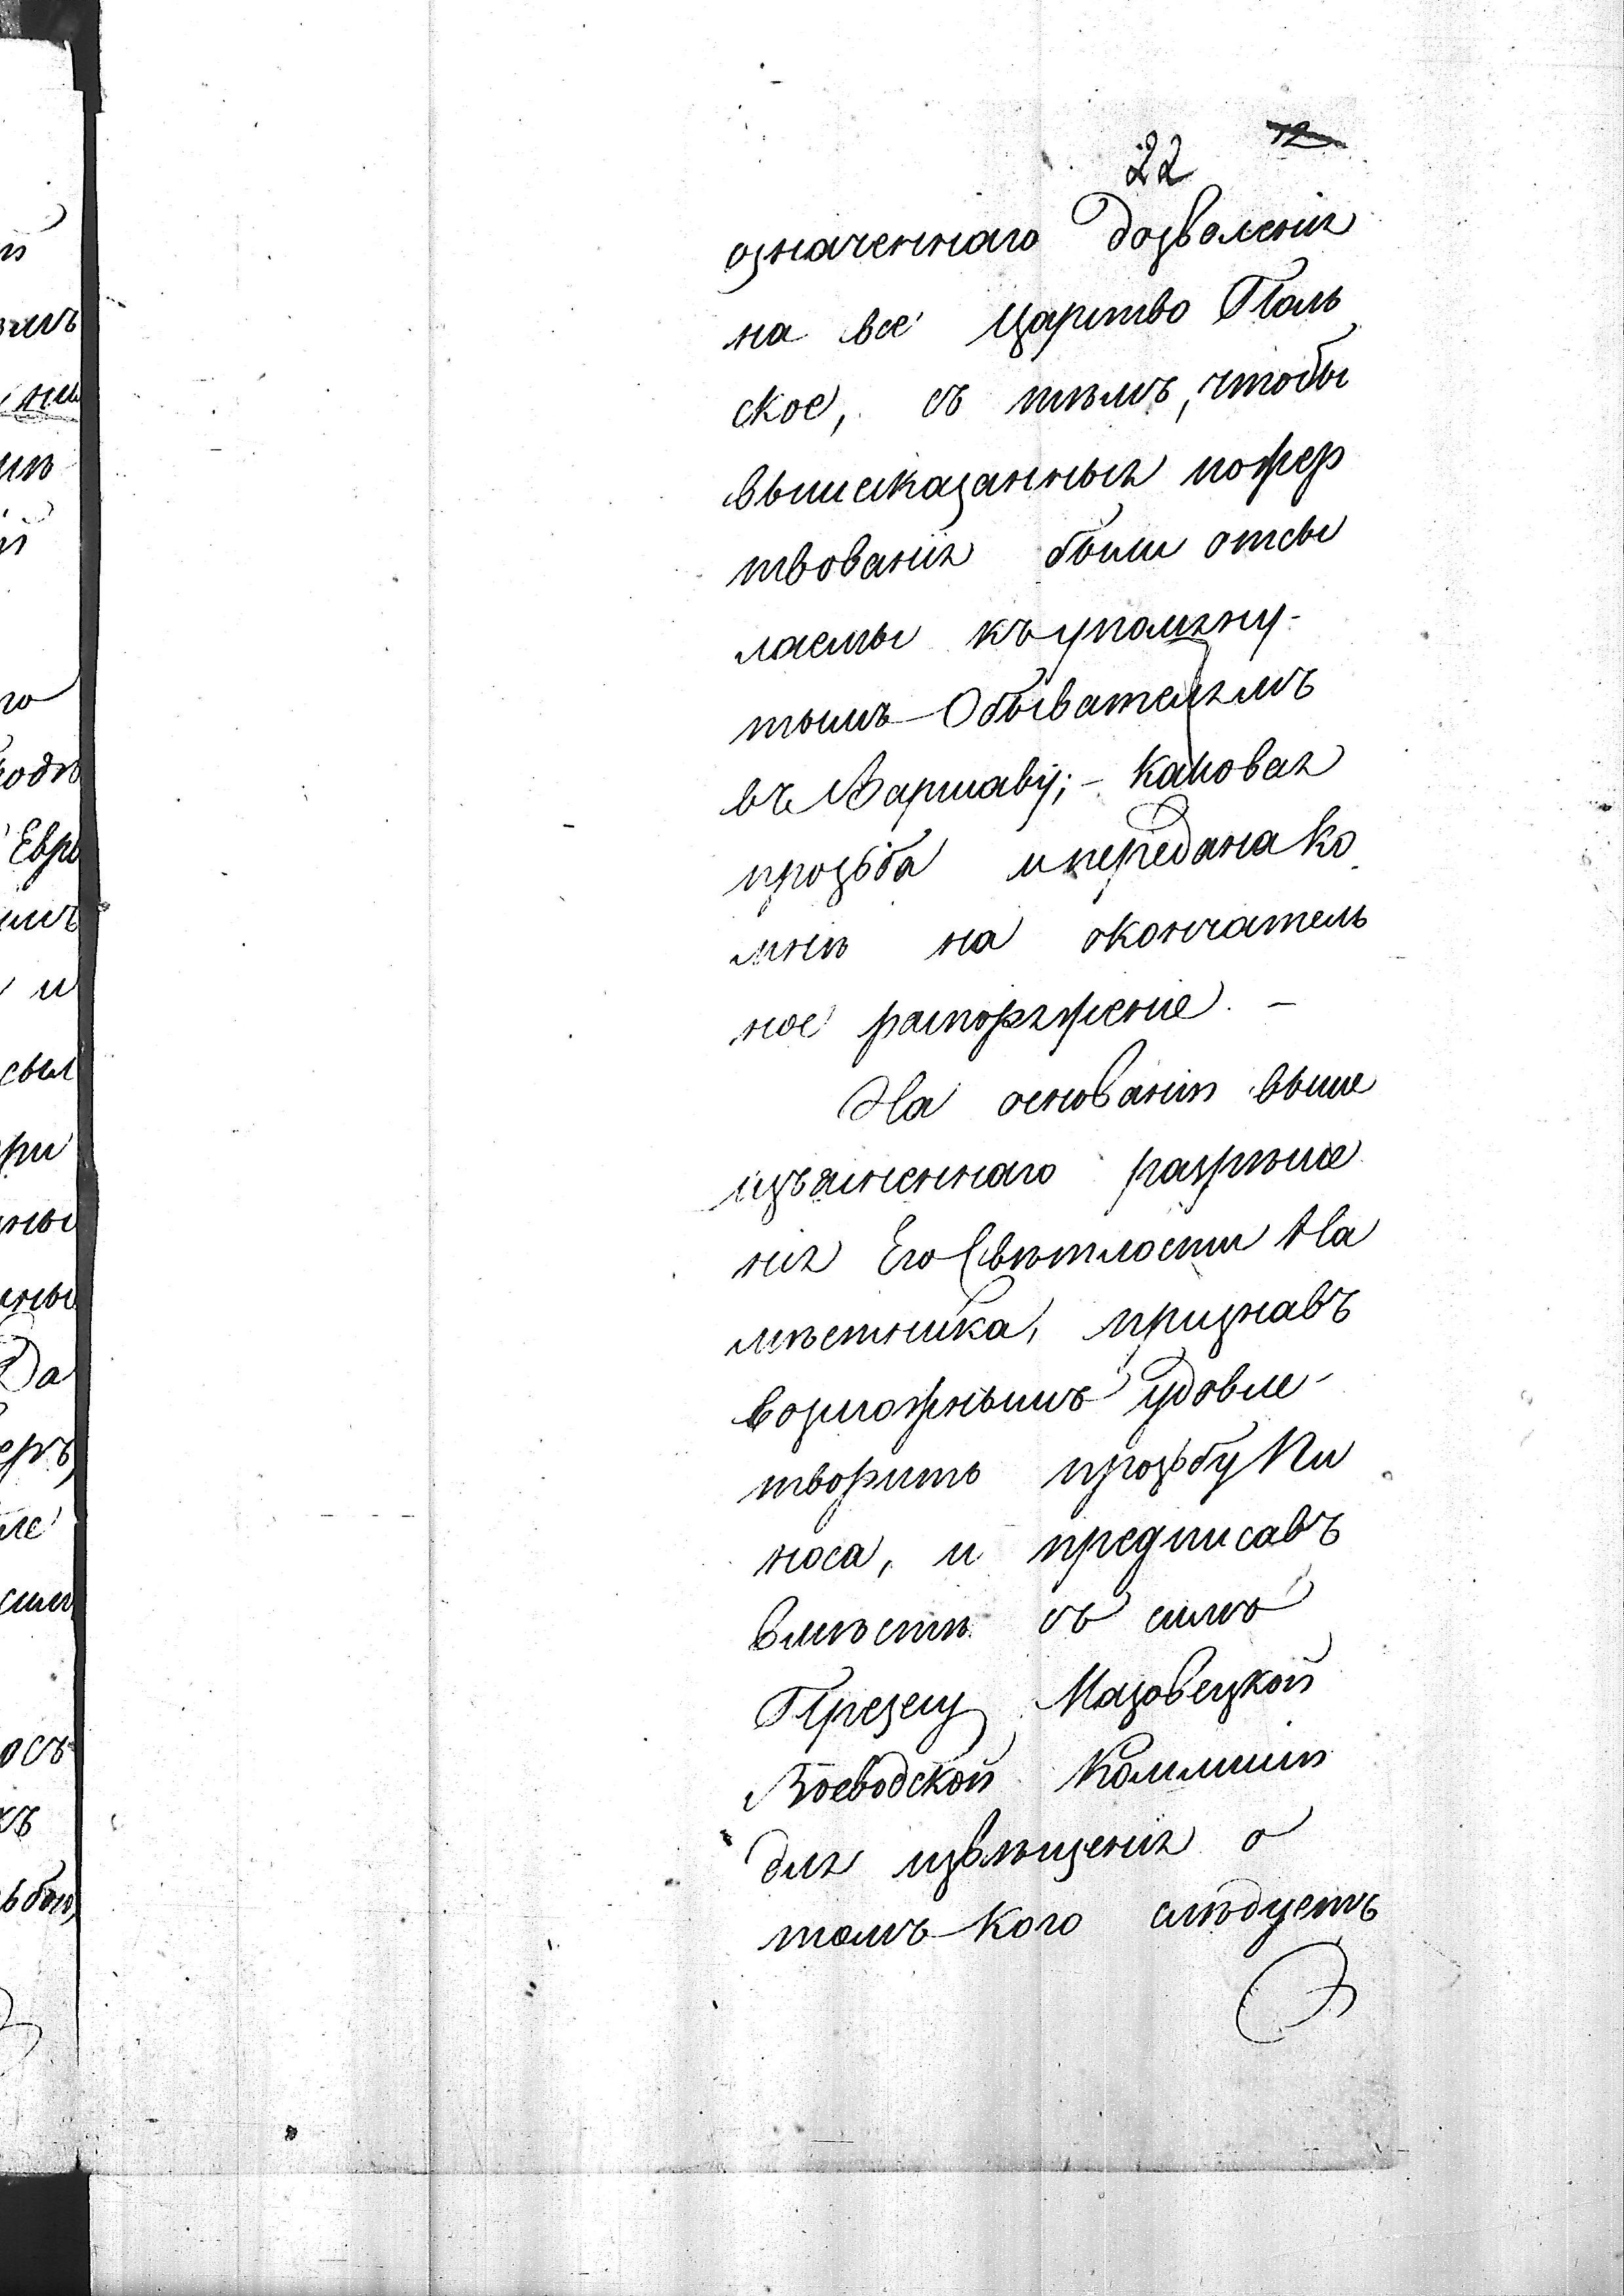 12
22
означеннаго дозволенія
на все Царство Поль
ское, съ тѣмъ, чтобы
вышесказанныя пожер
твованія были отсы
лаемы къ упомяну-
тымъ Обывателямъ
въ Варшаву; - каковая
прозьба и передана ко
мнѣ на окончатель
ное распоряженіе. -
На основаніи выше
изъясненнаго разрѣше
нія Его Свѣтлости На
мѣстника, признавъ
возможнымъ удовле-
творить прозьбу Пи
носа, и предписавъ
вмѣстѣ съ симъ
Презесу Мазовецкой
Воеводской Коммиссіи
для извѣщенія о
томъ кого слѣдуетъ